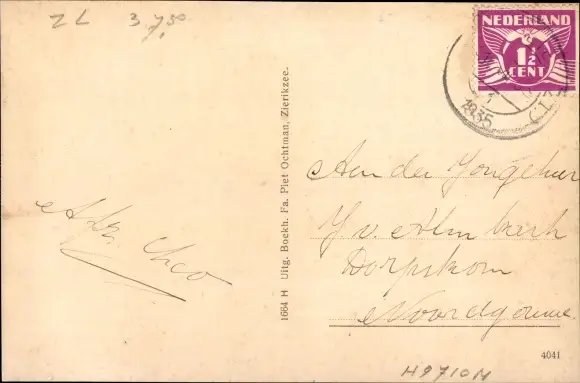 ZL 3.75⁰
NEDERLAND
1½
CENT
1935
Aan den Jongeheer
J v. Alm kerk
Dorpskom
Noordgouwe
1664 H Uitg. Boekh. Fa. Piet Ochtman, Zierikzee.
4041
H9710M